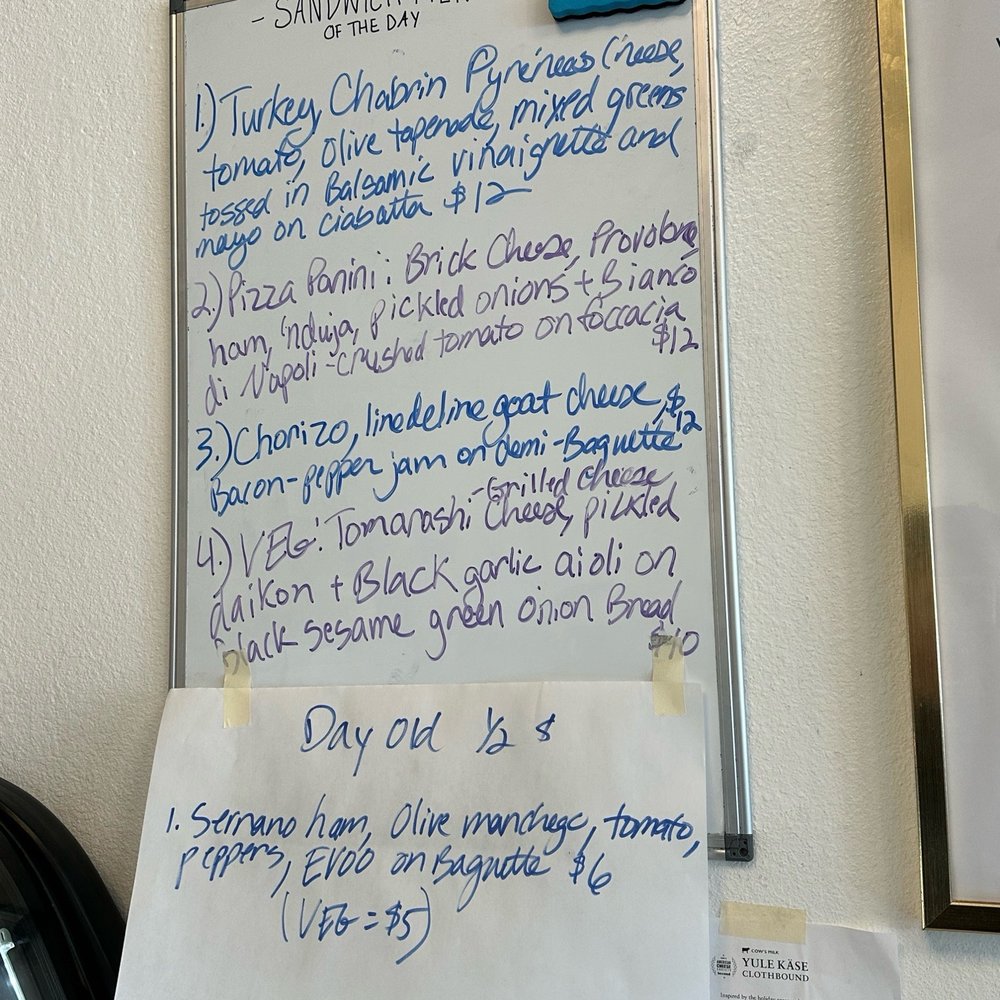 - SANDWICH
OF THE DAY
1.) Turkey, Chabrin Pyrénees Cheese,
tomato, Olive tapenade, mixed greens
tossed in Balsamic vinaignette and
mayo on ciabatta $12
2.) Pizza Panini: Brick Cheese, Provolone,
ham, 'nduja, pickled onions + Bianco
di Napoli-crushed tomato on foccacia
$12
3.) Chorizo, linedeline goat cheese, $12
Bacon-pepper jam on demi-Baguette
-Grilled Cheese
4.) VEG: Tomarashi Cheese, pickled
daikon + Black garlic aioli on
black sesame green onion Bread
$10
Day Old 1/2 $
1. Serrano ham, Olive manchego, tomato,
peppers, EVOO on Baguette $6
(VEG = $5)
COW'S MILK
YULE KÄSE
CLOTHBOUND
Inspired by the holiday